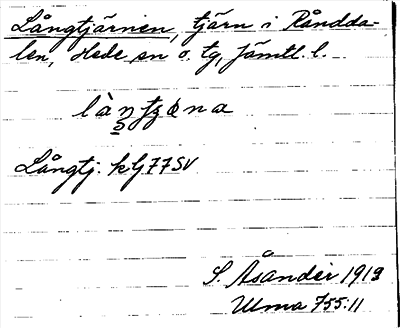 Långtjärnen, tjärn i Råndda-
len, Hede sn o. tg, Jämtl. l.
Långtj. kbj 77 SV
S. Åsander 1913
Ulma 755:11